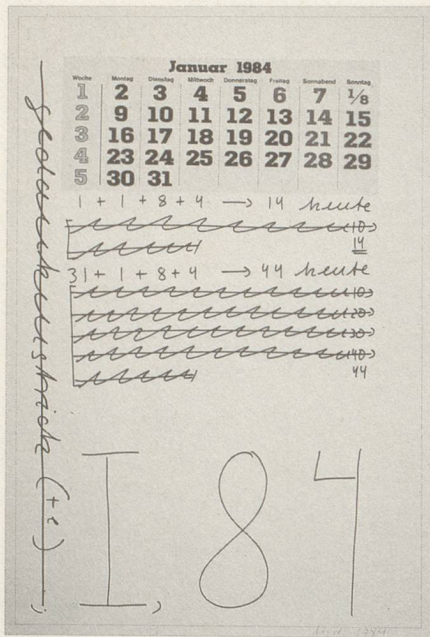 Januar 1984
Woche Montag Dienstag Mittwoch Donnerstag Freitag Sonnabend Sonntag
1 2 3 4 5 6 7 1/8
2 9 10 11 12 13 14 15
3 16 17 18 19 20 21 22
4 23 24 25 26 27 28 29
5 30 31
1 + 1 + 8 + 4 → 14 heute
10
14
31 + 1 + 8 + 4 → 44 heute
10
20
30
40
44
gedankenstrich (+e)
I, 84